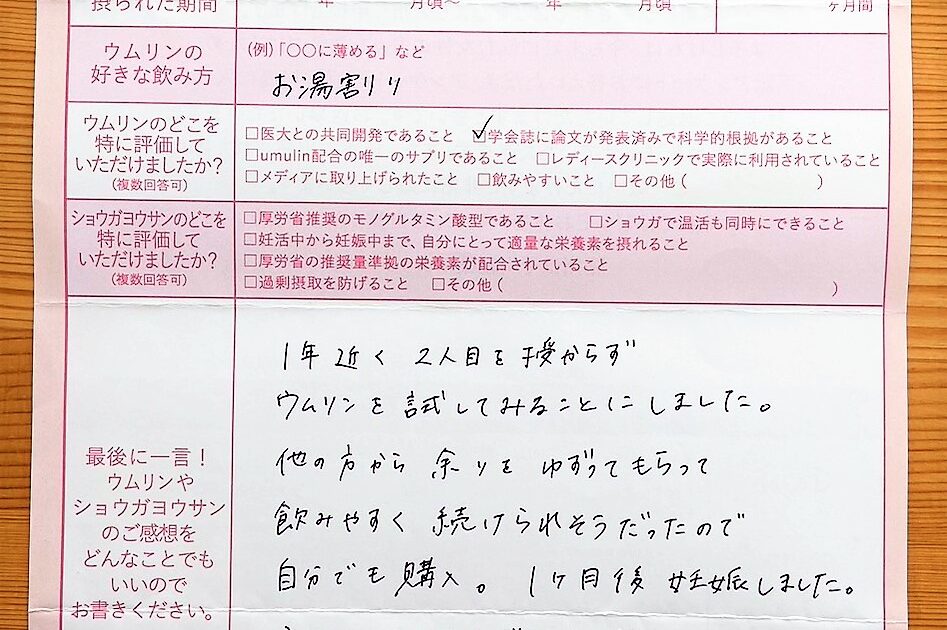 摂られた期間
年 月頃〜 年 月頃 ヶ月間
ウムリンの
好きな飲み方
(例)「〇〇に薄める」など
お湯割り
ウムリンのどこを
特に評価して
いただけましたか?
(複数回答可)
□医大との共同開発であること ☑学会誌に論文が発表済みで科学的根拠があること
□umulin配合の唯一のサプリであること □レディースクリニックで実際に利用されていること
□メディアに取り上げられたこと □飲みやすいこと □その他( )
ショウガヨウサンのどこを
特に評価して
いただけましたか?
(複数回答可)
□厚労省推奨のモノグルタミン酸型であること □ショウガで温活も同時にできること
□妊活中から妊娠中まで、自分にとって適量な栄養素を摂れること
□厚労省の推奨量準拠の栄養素が配合されていること
□過剰摂取を防げること □その他( )
最後に一言!
ウムリンや
ショウガヨウサン
のご感想を
どんなことでも
いいので
お書きください。
1年近く 2人目を授からず
ウムリンを試してみることにしました。
他の方から余りをゆずってもらって
飲みやすく続けられそうだったので
自分でも購入。1ヶ月後妊娠しました。